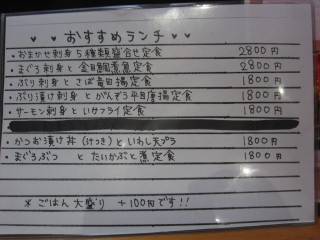 おすすめランチ
・おまかせ刺身5種類盛合せ定食 2800円
・まぐろ刺身と金目鯛煮魚定食 2800円
・ぶり刺身とさば竜田揚定食 1800円
・ぶり漬け刺身とがんぞう平目唐揚定食 1800円
・サーモン刺身といかフライ定食 1800円
・かつお漬け丼(汁つき)といわし天プラ 1800円
・まぐろぶつとたいかぶと煮定食 1800円
※ごはん大盛り +100円です!!